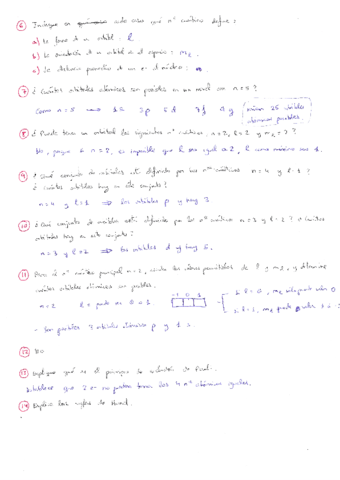 ⑥ Indique en cada caso qué nº cuántico define:
a) La forma de un orbital: l
b) La orientación de un orbital en el espacio: mₗ
c) La distancia promedio de un e- al núcleo: n.
⑦ ¿Cuántos orbitales atómicos son posibles en un nivel con n = 5?
Como n = 5 1s 3p 5d 7f 9g
25 orbitales
atómicos posibles
⑧ ¿Puede tener un orbital los siguientes nº cuánticos, n = 2, l = 2 y mₗ = ?
No, porque si n = 2, es imposible que l sea igual a 2, l como máximo sea 1.
⑨ ¿Qué conjunto de orbitales está definido por los nº cuánticos n = 4 y l = 1?
¿cuántos orbitales hay en este conjunto?
n = 4 y l = 1 ⟹ los orbitales p y hay 3.
⑩ ¿Qué conjunto de orbitales está definido por los nº cuánticos n = 3 y l = 2? ¿Cuántos
orbitales hay en este conjunto?
n = 3 y l = 2 ⟹ orbitales d y hay 5.
⑪ Para el nº cuántico principal n = 2, los valores permitidos de l y m y
cuántos orbitales atómicos son posibles.
-1 0 1
n = 2 l puede ser 0 ó 1.
si l = 0, mₗ puede valer 0
si l = 1, mₗ puede valer
- Son posibles orbitales p y s
⑫ NO
⑬ Explique qué es el principio de exclusión de Pauli.
Establece que 2 e- no pueden tener los 4 nº cuánticos iguales.
⑭ Explica las reglas de Hund.